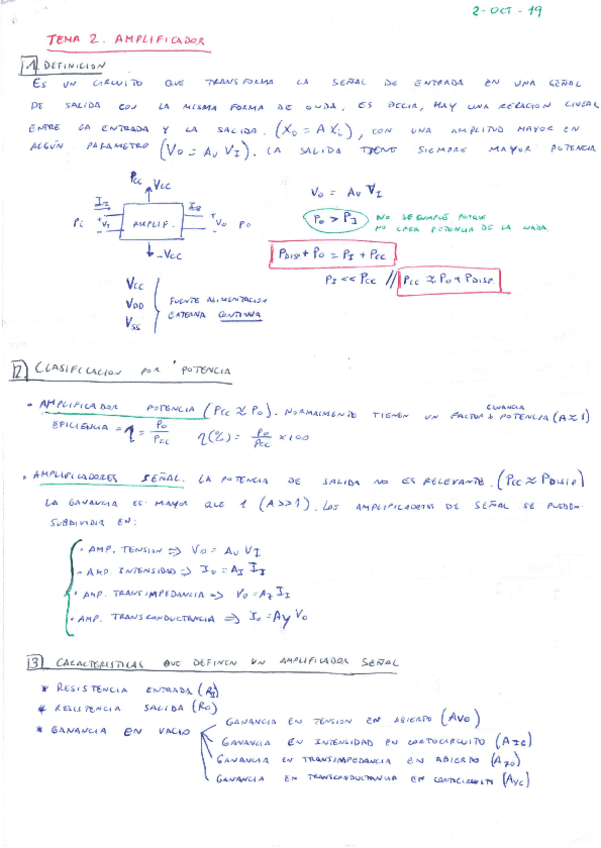 2-OCT-19
TEMA 2. AMPLIFICADOR
1. DEFINICION
ES UN CIRCUITO QUE TRANSFORMA LA SEÑAL DE ENTRADA EN UNA SEÑAL
DE SALIDA CON LA MISMA FORMA DE ONDA, ES DECIR, HAY UNA RELACION LINEAL
ENTRE LA ENTRADA Y LA SALIDA. (Xo = A Xi), CON UNA AMPLITUD MAYOR EN
ALGÚN PARAMETRO (Vo = Av VI). LA SALIDA TIENE SIEMPRE MAYOR POTENCIA
Pcc Vcc
Vo = Av VI
II Io
Pi +VI- AMPLIF. + Vo - Po
Po > PI NO SE CUMPLE PORQUE
NO CREA POTENCIA DE LA NADA.
-Vcc
PDISP + Po = PI + Pcc
PI << Pcc // Pcc ≈ Po + PDISP.
Vcc
VDD
VSS
FUENTE ALIMENTACION
EXTERNA CONTINUA
2. CLASIFICACION POR POTENCIA
• AMPLIFICADOR POTENCIA (Pcc ≈ Po). NORMALMENTE TIENEN UN FACTOR GANANCIA POTENCIA (A ≈ 1)
EFICIENCIA = η = Po/Pcc η(%) = Po/Pcc × 100
• AMPLIFICADORES SEÑAL. LA POTENCIA DE SALIDA NO ES RELEVANTE. (Pcc ≈ PDISIP)
LA GANANCIA ES MAYOR QUE 1 (A>>1). LOS AMPLIFICADORES DE SEÑAL SE PUEDEN
SUBDIVIDIR EN:
• AMP. TENSION => Vo = Av VI
• AMP. INTENSIDAD => Io = AI II
• AMP. TRANSIMPEDANCIA => Vo = Az II
• AMP. TRANSCONDUCTANCIA => Io = Ay Vo
3 CARACTERISTICAS QUE DEFINEN UN AMPLIFICADOR SEÑAL
* RESISTENCIA ENTRADA (RI)
* RESISTENCIA SALIDA (RO)
* GANANCIA EN VACIO
GANANCIA EN TENSION EN ABIERTO (Avo)
GANANCIA EN INTENSIDAD EN CORTOCIRCUITO (AIC)
GANANCIA EN TRANSIMPEDANCIA EN ABIERTO (Azo)
GANANCIA EN TRANSCONDUCTANCIA EN CORTOCIRCUITO (Ayc)